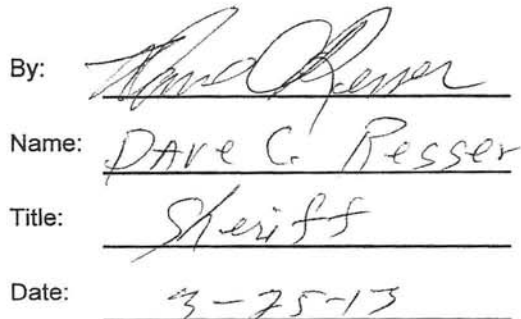 By: Dave C Resser
Name: DAve C. Resser
Title: Sheriff
Date: 3-25-13